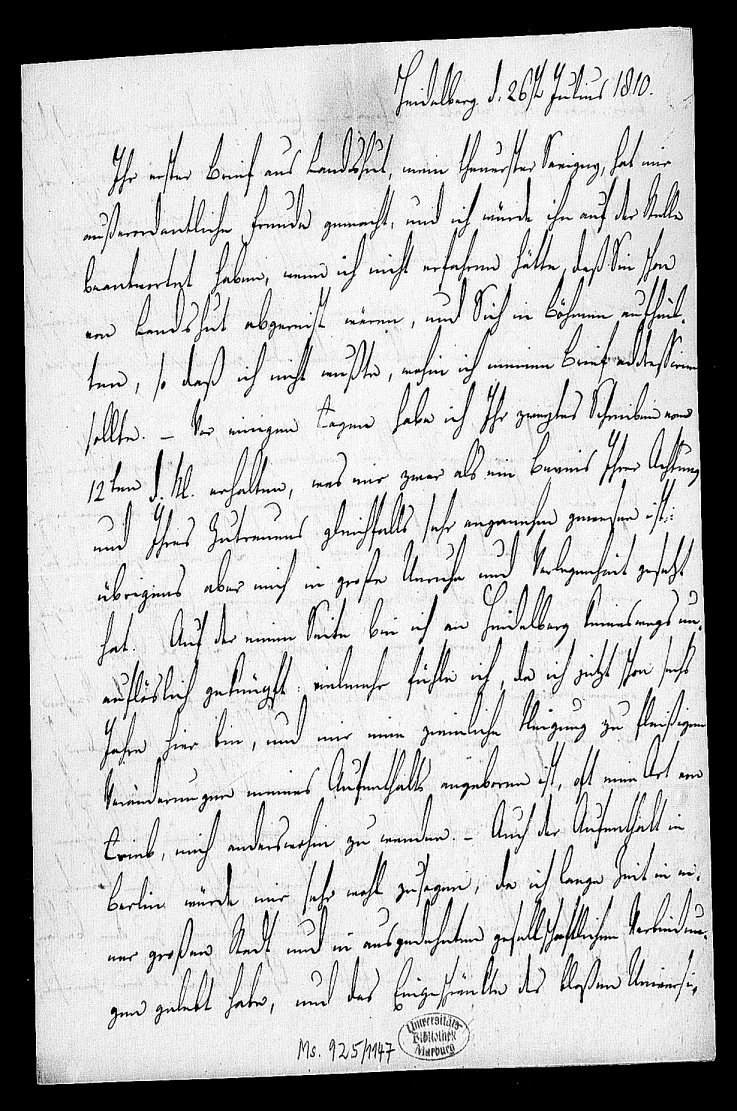 Heidelberg d. 26st Julius 1810.
Ihr erster Brief aus Landshut, mein theuerster Savigny, hat mir
außerordentliche Freude gemacht, und ich würde ihn auf der Stelle
beantwortet haben, wenn ich nicht erfahren hätte, daß Sie schon
von Landshut abgereist wären, und Sich in Böhmen aufhiel-
ten, so daß ich nicht wußte, wohin ich meinen Brief addressiren
sollte. – Vor einigen Tagen habe ich Ihr zweytes Schreiben vom
12ten d. M. erhalten, was mir zwar als ein Beweis Ihrer Achtung
und Ihres Zutrauens gleichfalls sehr angenehm gewesen ist:
übrigens aber mich in große Unruhe und Verlegenheit gesetzt
hat. Auf der einen Seite bin ich an Heidelberg keineswegs un-
auflöslich geknüpft: vielmehr fühle ich, da ich jetzt schon sechs
Jahre hier bin, und mir eine ziemliche Neigung zu fleißigen
Veränderungen meines Aufenthalts angeboren ist, oft eine Art von
Trieb, mich anderswohin zu wenden. – Auch der Aufenthalt in
Berlin würde mir sehr wohl zusagen, da ich lange Zeit in ei-
ner großen Stadt und in ausgedehnten gesellschaftlichen Verbindun-
gen gelebt habe, und das Eingeschränkte des bloßen Universi-
Ms. 925/1147
Universitäts
Bibliothek
Marburg